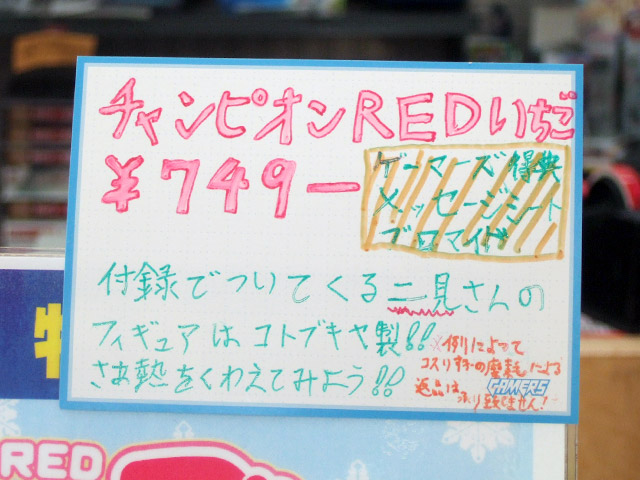 チャンピオンREDいちご
¥749ー
ゲーマーズ特典
メッセージシート
ブロマイド
付録でついてくる二見さんの
フィギュアはコトブキヤ製!!
さあ熱をくわえてみよう!!
※例によって
コスリすぎの摩耗による
返品は
承りません!
GAMERS
特
RED